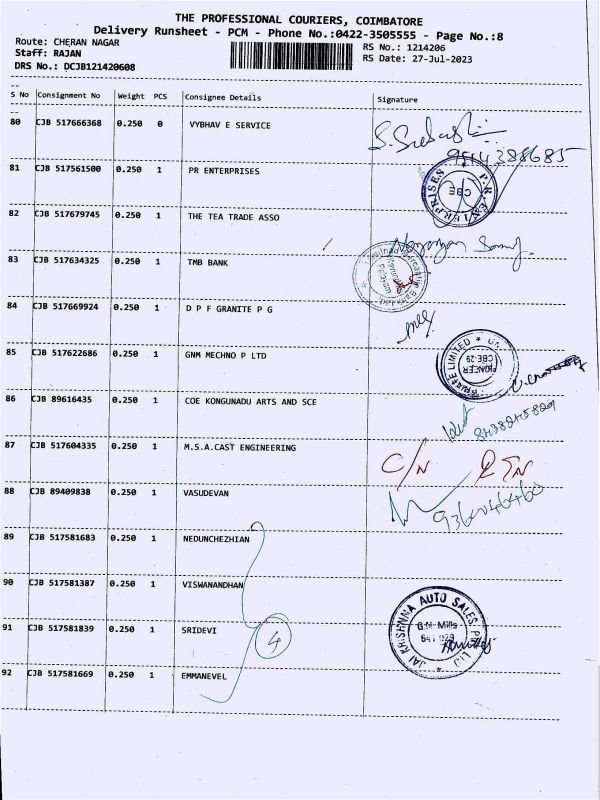 THE PROFESSIONAL COURIERS, COIMBATORE
Delivery Runsheet - PCM - Phone No.:0422-3505555 - Page No.:8
Route: CHERAN NAGAR
RS No.: 1214206
Staff: RAJAN
RS Date: 27-Jul-2023
DRS No.: DCJB121420608
S No Consignment No Weight PCS Consignee Details Signature
80 CJB 517666368 0.250 0 VYBHAV E SERVICE
9514388685
81 CJB 517561500 0.250 1 PR ENTERPRISES
P.R. ENTERPRISES
CBE
82 CJB 517679745 0.250 1 THE TEA TRADE ASSO
83 CJB 517634325 0.250 1 TMB BANK
84 CJB 517669924 0.250 1 D P F GRANITE P G
85 CJB 517622686 0.250 1 GNM MECHNO P LTD
PRIVATE LIMITED
PIONEER
CBE-29
86 CJB 89616435 0.250 1 COE KONGUNADU ARTS AND SCE
87 CJB 517604335 0.250 1 M.S.A.CAST ENGINEERING
C/N RTN
88 CJB 89409838 0.250 1 VASUDEVAN
89 CJB 517581683 0.250 1 NEDUNCHEZHIAN
90 CJB 517581387 0.250 1 VISWANANDHAN
91 CJB 517581839 0.250 1 SRIDEVI
4
JAI KRISHNNA AUTO SALES P LTD
G.N. Mills
641 029
92 CJB 517581669 0.250 1 EMMANEVEL